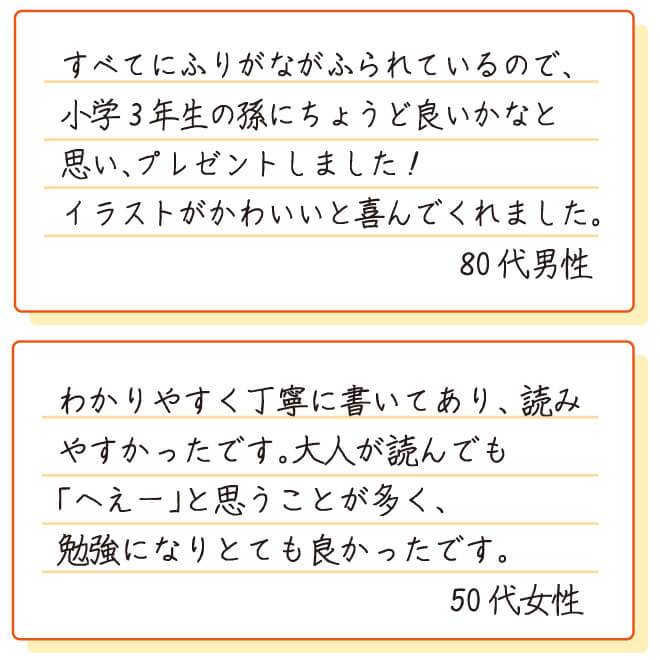 すべてにふりがながふられているので、
小学3年生の孫にちょうど良いかなと
思い、プレゼントしました！
イラストがかわいいと喜んでくれました。
80代男性
わかりやすく丁寧に書いてあり、読み
やすかったです。大人が読んでも
「へえー」と思うことが多く、
勉強になりとても良かったです。
50代女性